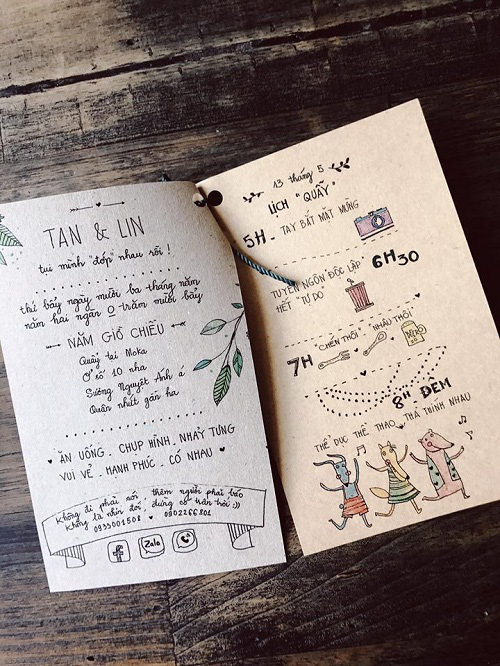 TAN & LIN
tui mình "đớp" nhau rồi !
thứ bảy ngày mười ba tháng năm
năm hai ngàn 0 trăm mười bảy
NĂM GIỜ CHIỀU
Quẩy tại Moka
Ở số 10 nha
Sương Nguyệt Ánh á
Quận nhứt gần hà
ĂN UỐNG . CHỤP HÌNH . NHẢY TƯNG
VUI VẺ . HẠNH PHÚC . CÓ NHAU
Không đi phải nói , thêm người phải báo
không là nhịn đói, đừng có trăn trối :))
0933001508 ♥ 0902266801
Zalo
13 tháng 5
LỊCH "QUẨY
5H - TAY BẮT MẶT MỪNG
TUYÊN NGÔN ĐỘC LẬP 6H30
HẾT "TỰ DO
7H "CHÉN THÔI" NHẬU THÔI
8H ĐÊM
THỂ DỤC THỂ THAO . THẢ THÍNH NHAU